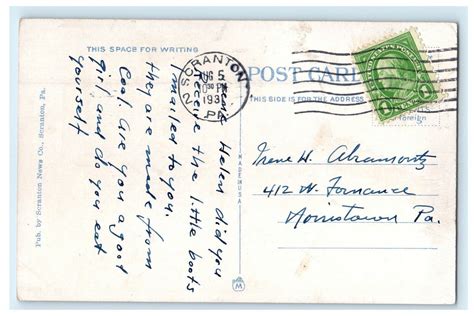 THIS SPACE FOR WRITING
POST CARD
THIS SIDE IS FOR THE ADDRESS
SCRANTON
AUG 5
PM
193
PA.
1
foreign
Helen did you
receive the little boots
I mailed to you.
they are made from
Coal, Are you a good
girl and do you eat
yourself
Irene W. Abramovitz
412 W. Fornance
Norristown Pa.
Pub. by Scranton News Co., Scranton, Pa.
MADE IN U.S.A.
M